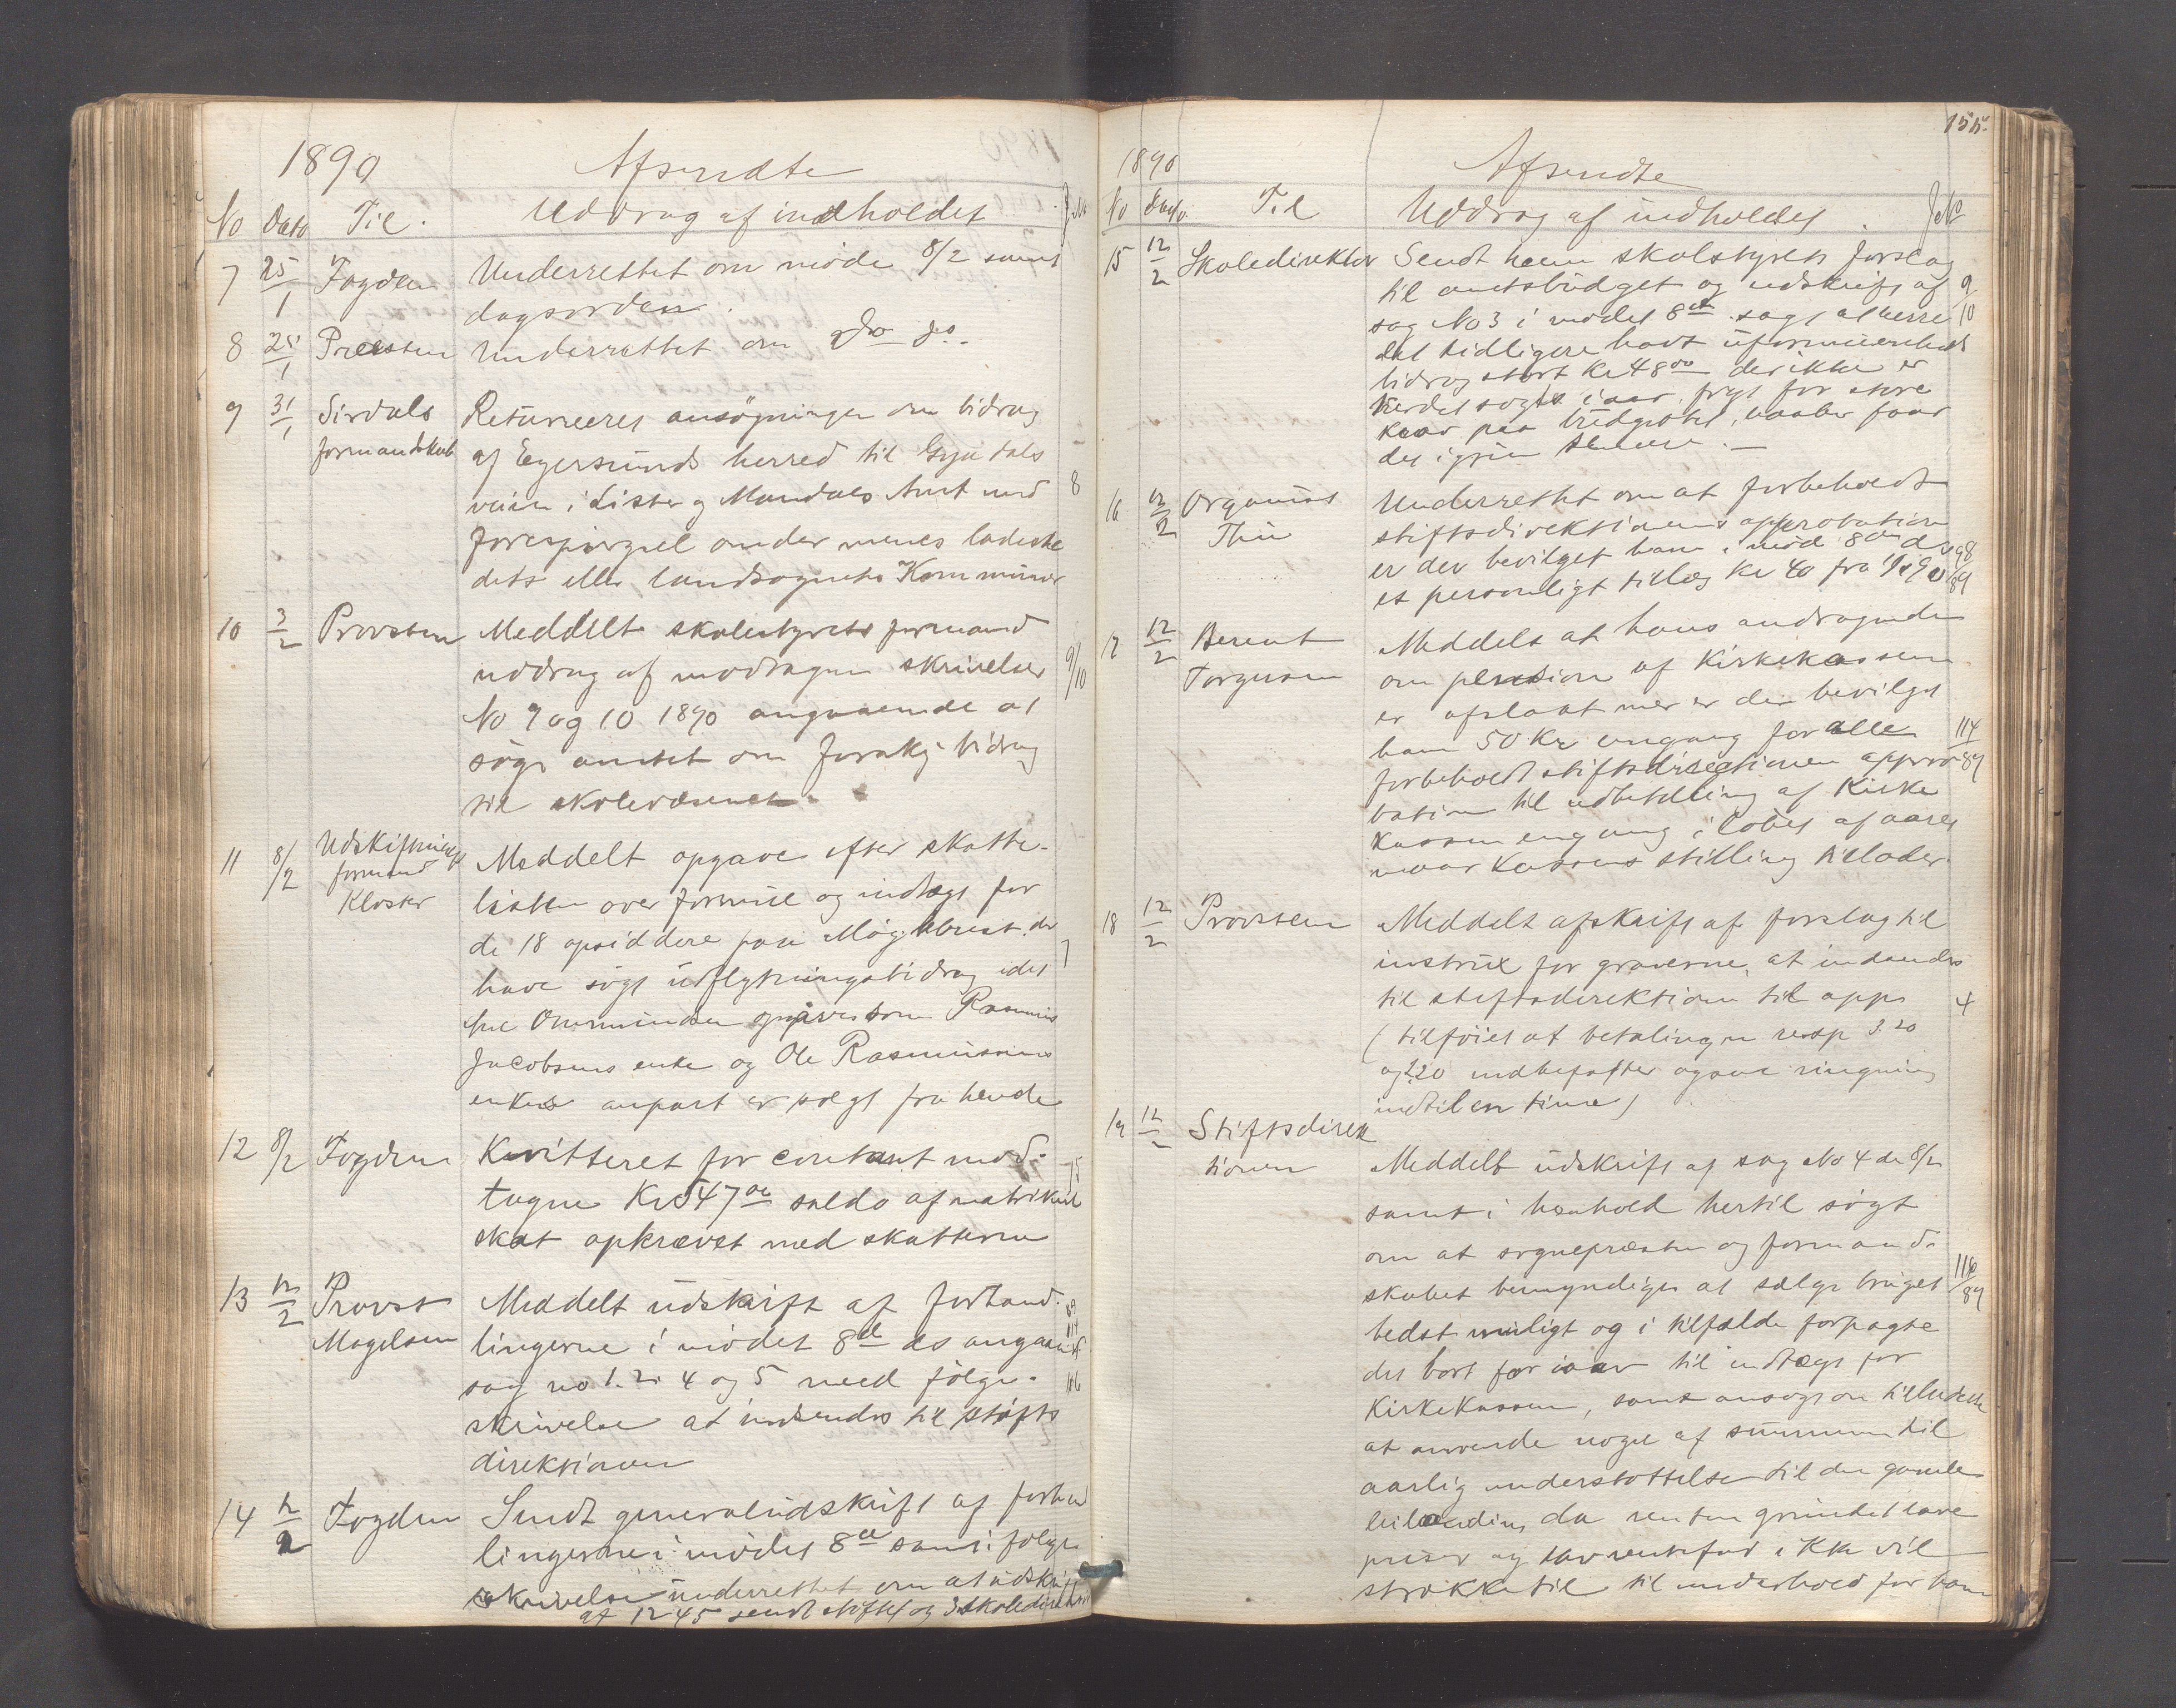 1890
Afsendte
No Dato Til. Uddrag af indholdet J.No
7 25/1 Fogden Underrettet om møde 8/2 samt
dagsorden.
8 25/1 Præsten Underrettet om do do.
9 31/1 Sirdals Returneres ansøgningen om bidrag
formandskab af Egersunds herred til Gyadals
veien i Lister og Mandals Amt med 8
forespørgsel om der menes ladeste
dets eller landsognets Kommune
10 3/2 Provsten Meddelt skolestyrets formand
uddrag af modtagne skrivelser 9/10
No 9 og 10 1890 angaaende at
søge amtet om forskj. bidrag
til skolevæsenet.
11 8/2 Udskiftnings
formand
Kloster
Meddelt opgave efter skatte-
listen over formue og indtægt for
de 18 opsiddere paa Møgebrest der 7
have søgt udflytningsbidrag idet
Ommundsen opgives som Rasmus
Jacobsens enke og Ole Rasmussens
enkes anpart er solgt fra hende
12 8/2 Fogden Kvitteret for contant mod-
tagne Kr 547 00 saldo af matrikul
skat opkrævet med skatterne
13 12/2 Provst Meddelt udskrift af forhand-
Magelsen lingerne i mødet 8de ds angaaende
sag no 1. 2. 4 og 5 med følge- 116
skrivelse at indsendes til stifts
direktionen
14 12/2 Fogden Sendt generaludskrift af forhand
lingerne i mødet 8de samt i følge
skrivelse underrettet om at udskrift
af 1245 sendt stiftet og 3 skoledirektøren
155.
1890
Afsendte
No Dato Til Uddrag af indholdet J.No
15 12/2 Skoledirektør Sendt ham skolestyrets forslag
til amtsbudget og udskrift af 9
sag No 3 i mødet 8de sagt at herre 10
det tidligere havt uformuenheds
bidrag stort Kr 48 00 der ikke er
søgt i aar, frygt for store
krav paa budgettet, haaber faar
det igjen senere.
16 12/2 Organist Underrettet om at forbeholdt
Thu stiftsdirektionens approbation
er der bevilget ham i mød 8de ds 98
et personligt tillæg Kr 40 fra 1/1 90 /89
17 12/2 Berent Meddelt at hans andragende
Torgersen om pension af Kirkekassen
er afslaat men er der bevilget
ham 50 Kr engang for alle 114
forbeholdt stiftsdirectionen appro- /89
bation til udbetaling af Kirke
kassen engang i løbet af aaret
naar kassens stilling tillader.
18 12/2 Provsten Meddelt afskrift af forslag til
instrux for graverne, at indsendes
til stiftsdirektionen til app. 4
(tilføiet at betalingen resp 3.20
og 2.20 indbefatter ogsaa ringning
indtil en time)
19 12/2 Stiftsdirek
tionen Meddelt udskrift af sag No 4 de 8/2
samt i henhold hertil søgt
om at sognepræsten og formand-
skabet bemyndiges at sælge bruget 116
bedst muligt og i tilfælde forpagte /89
det bort for iaar til indtægt for
Kirkekassen, samt ansøgt om tilladelse
at anvende noget af summen til
aarlig understøttelse til den gamle
leilænding da renten grundet lave
priser og lav rentefod i Kk vil
strække til til underhold for ham